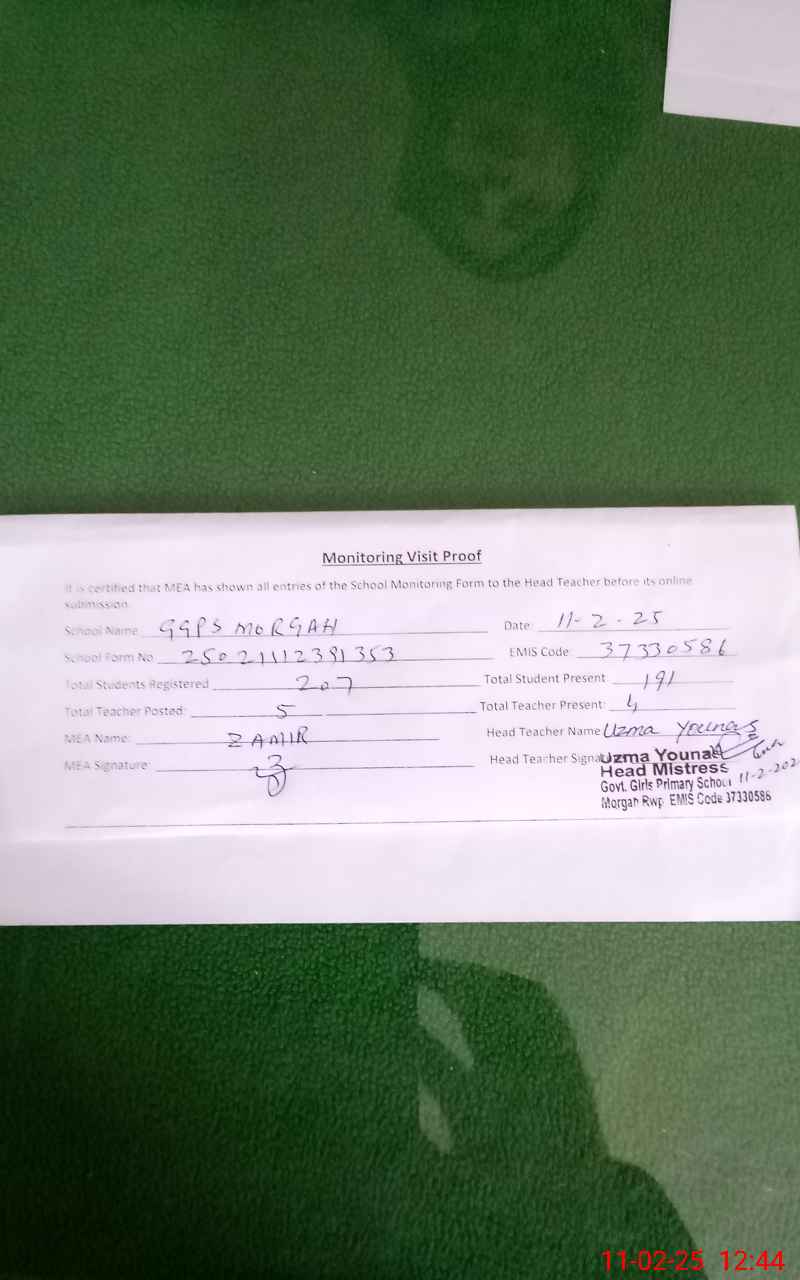 Monitoring Visit Proof
It is certified that MEA has shown all entries of the School Monitoring Form to the Head Teacher before its online
submission.
School Name GGPS MORGAH Date: 11-2-25
School Form No 25021112391353 EMIS Code: 37330586
Total Students Registered 207 Total Student Present 191
Total Teacher Posted: 5 Total Teacher Present: 4
MEA Name: ZAMIR Head Teacher Name Uzma Younas
MEA Signature: Head Teacher Signa
Uzma Younas
Head Mistress
Govt. Girls Primary School 11-2-202
Morgah Rwp EMIS Code 37330586
11-02-25 12:44